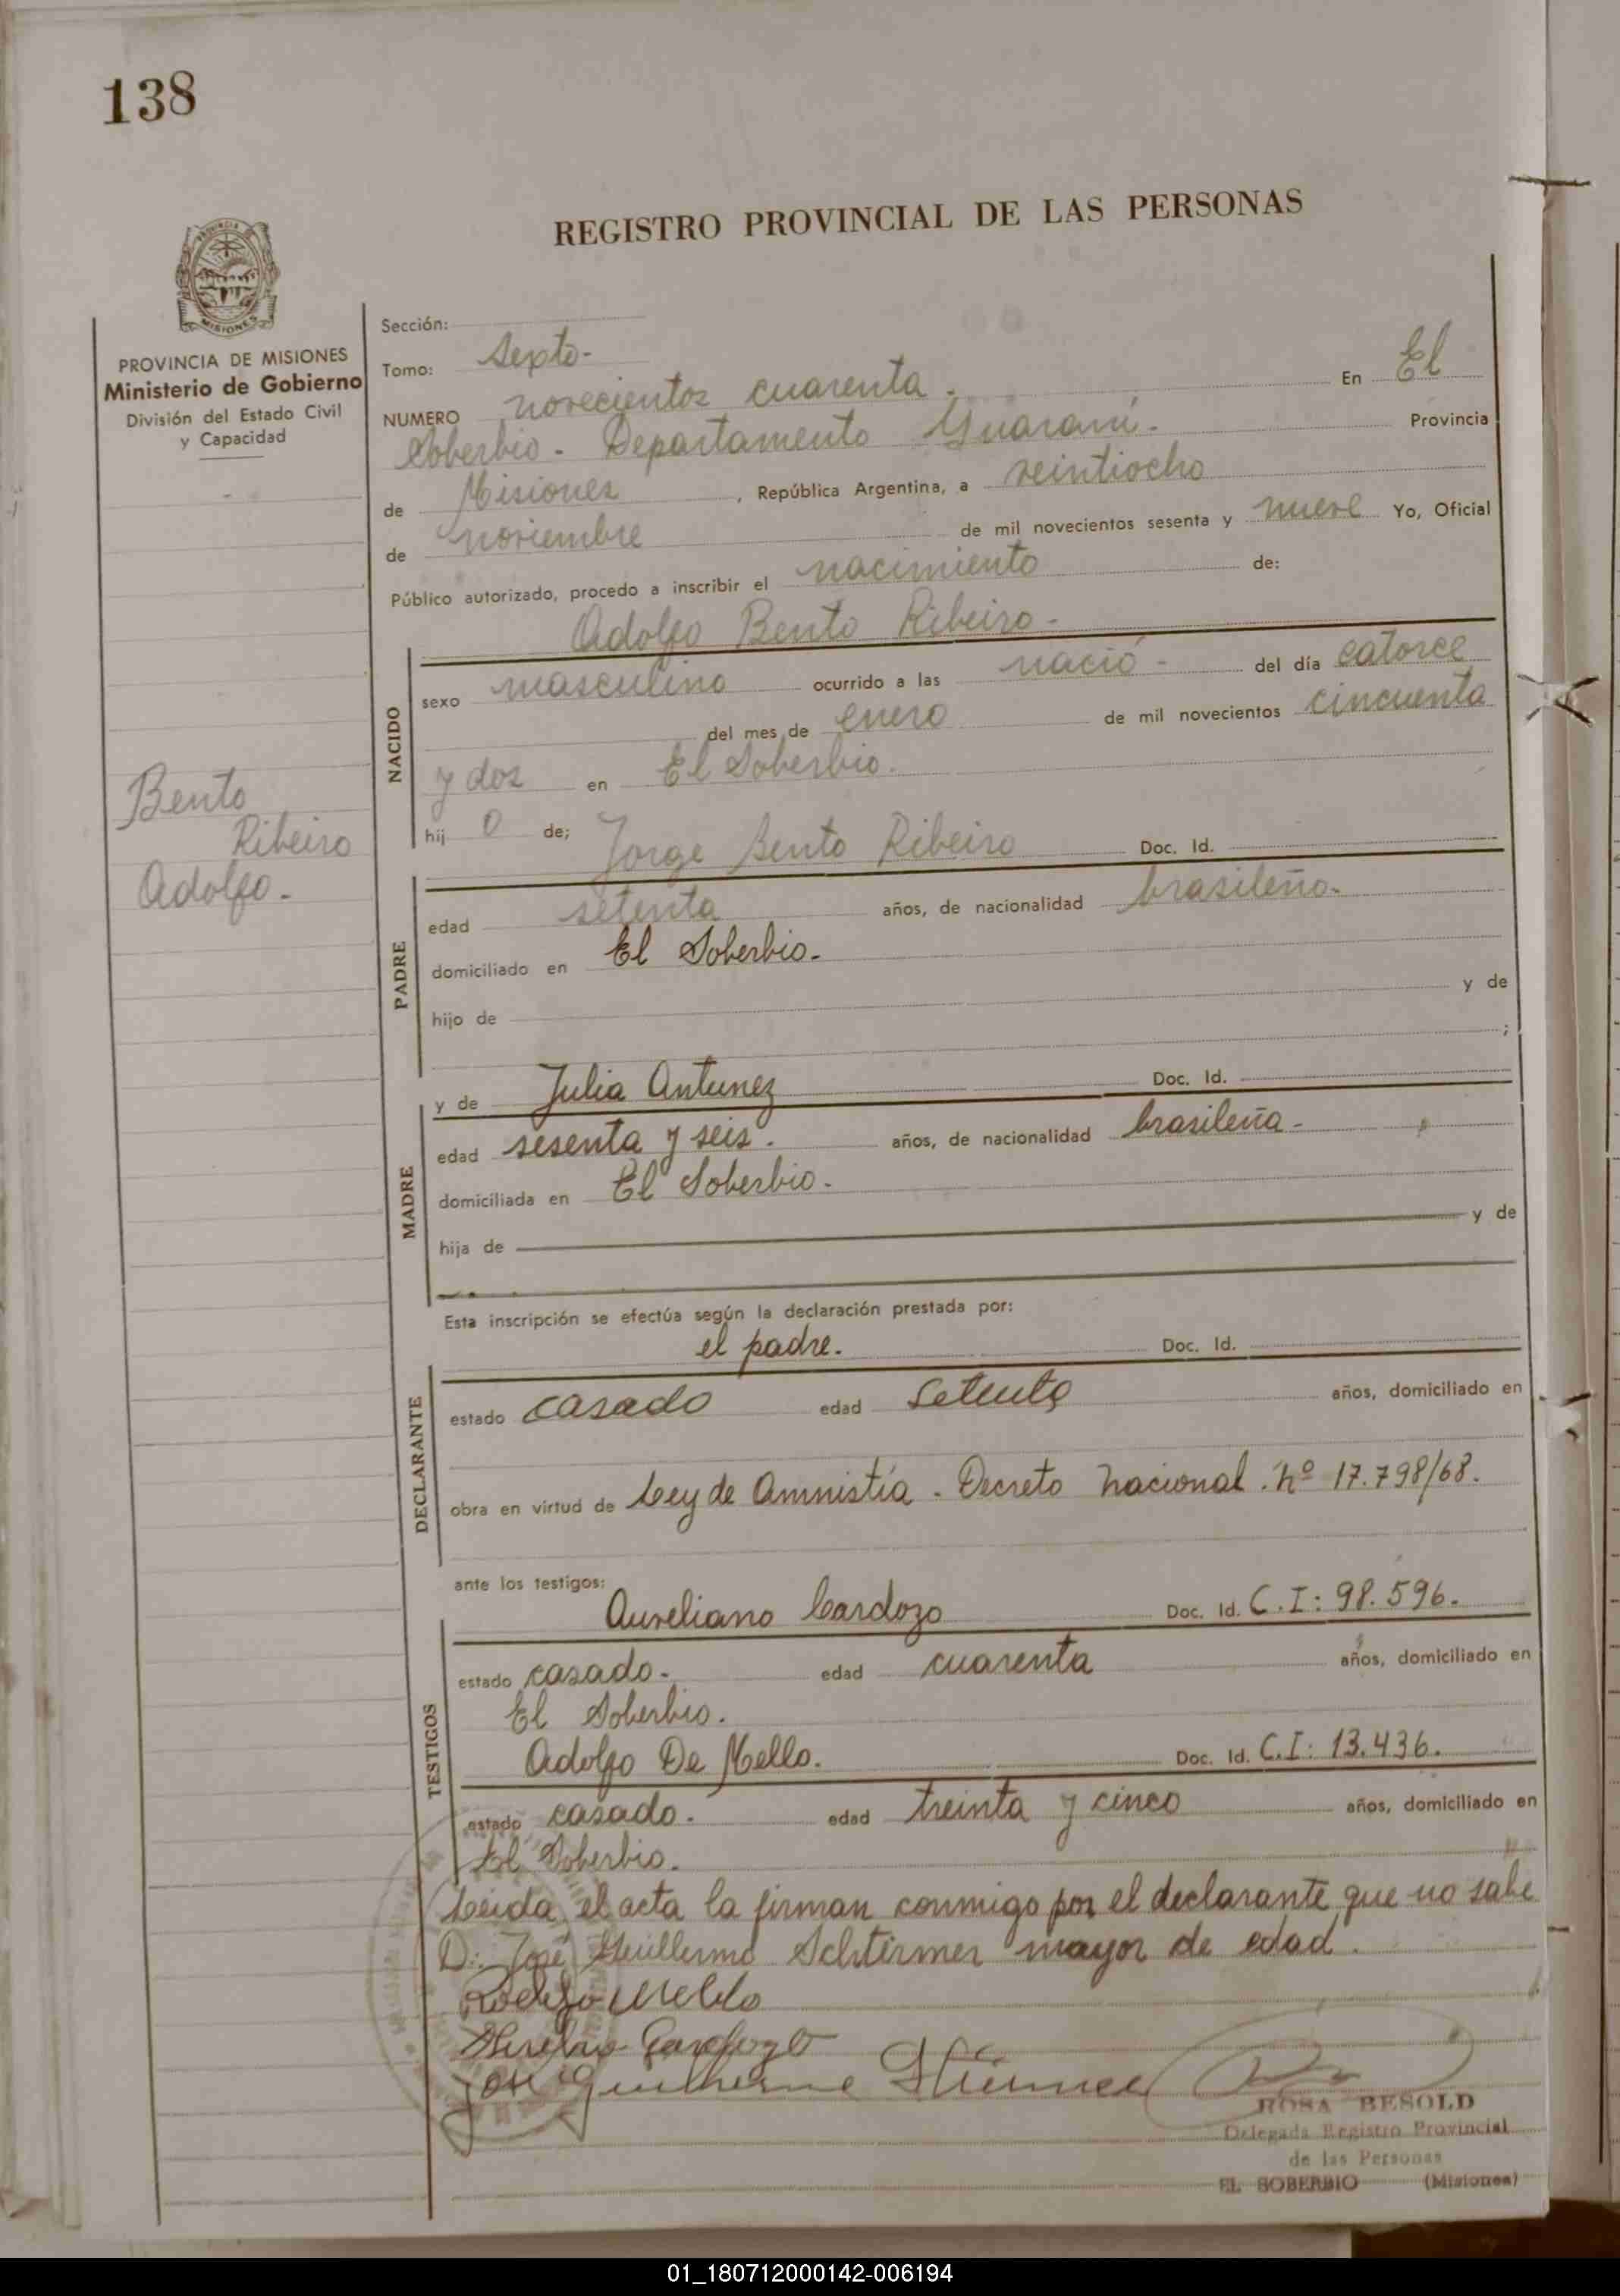 138
REGISTRO PROVINCIAL DE LAS PERSONAS
MISIONES
PROVINCIA DE MISIONES
Ministerio de Gobierno
División del Estado Civil
y Capacidad
Bento
Ribeiro
Adolfo.-
Sección:
Tomo: Sexto-
NUMERO novecientos cuarenta.- En El
Soberbio - Departamento Guaraní.- Provincia
de Misiones, República Argentina, a veintiocho
de noviembre de mil novecientos sesenta y nueve Yo, Oficial
Público autorizado, procedo a inscribir el nacimiento de:
Adolfo Bento Ribeiro.-
NACIDO
sexo masculino ocurrido a las nació - del día catorce
del mes de enero de mil novecientos cincuenta
y dos en El Soberbio.
hij o de; Jorge Bento Ribeiro Doc. Id.
PADRE
edad setenta años, de nacionalidad brasileño.
domiciliado en El Soberbio.
hijo de y de
;
y de Julia Antunez Doc. Id.
MADRE
edad sesenta y seis. años, de nacionalidad brasileña.-
domiciliada en El Soberbio.
hija de y de
Esta inscripción se efectúa según la declaración prestada por:
el padre. Doc. Id.
DECLARANTE
estado casado edad setenta años, domiciliado en
obra en virtud de Ley de Amnistía. Decreto Nacional. Nº 17.798/68.
ante los testigos:
Aureliano Cardozo Doc. Id. C.I: 98.596.
TESTIGOS
estado casado. edad cuarenta años, domiciliado en
El Soberbio.
Adolfo De Mello. Doc. Id. C.I: 13.436.
estado casado. edad treinta y cinco años, domiciliado en
El Soberbio.
Leida el acta la firman conmigo por el declarante que no sabe
D: José Guillermo Schtirmer mayor de edad.
ROSA BESOLD
Delegada Registro Provincial
de las Personas
EL SOBERBIO (Misiones)
01_180712000142-006194